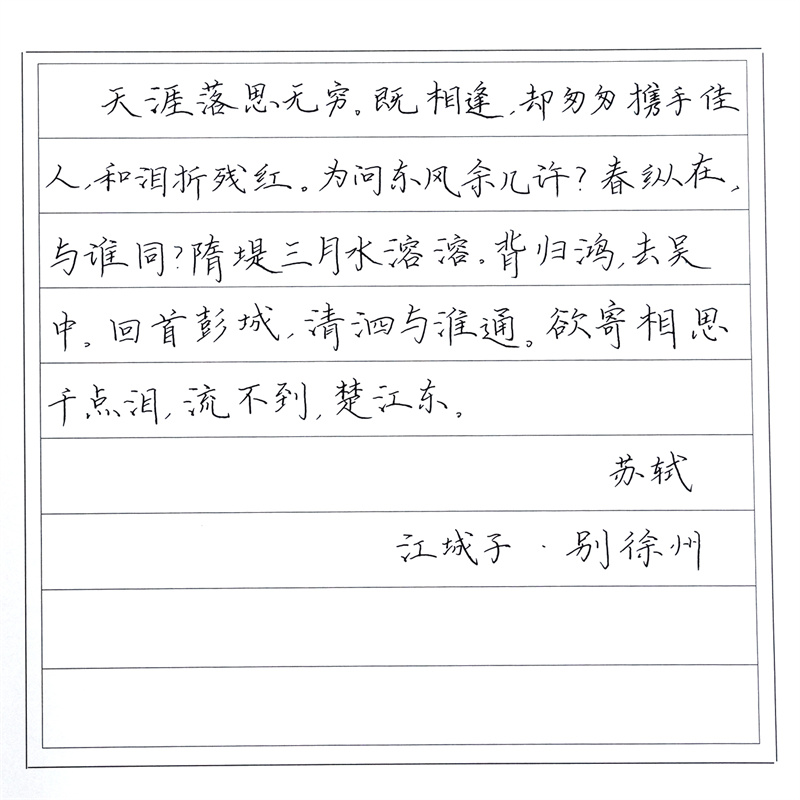 天涯落思无穷。既相逢,却匆匆携手佳
人,和泪折残红。为问东风余几许?春纵在,
与谁同?隋堤三月水溶溶。背归鸿,去吴
中。回首彭城,清泗与淮通。欲寄相思
千点泪,流不到,楚江东。
苏轼
江城子·别徐州